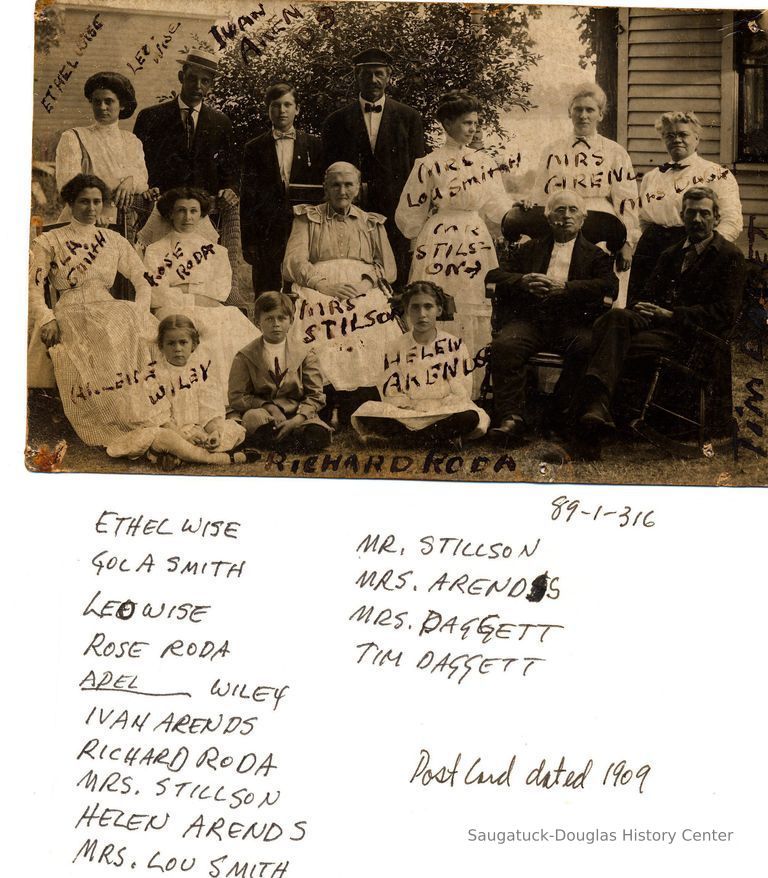 ETHEL WISE
LEO WISE
IVAN
ARENDS
MRS
LOU SMITH
MRS
ARENDS
MRS
GOLA
SMITH
ROSE
RODA
MR
STILS-
ON
MRS
STILSON
HELEN
ARENDS
WILEY
RICHARD RODA
TIM
89-1-316
ETHEL WISE
GOLA SMITH
LEO WISE
ROSE RODA
ADEL WILEY
IVAN ARENDS
RICHARD RODA
MRS. STILLSON
HELEN ARENDS
MRS. LOU SMITH
MR. STILLSON
MRS. ARENDS
MRS. DAGGETT
TIM DAGGETT
Post Card dated 1909
Saugatuck-Douglas History Center